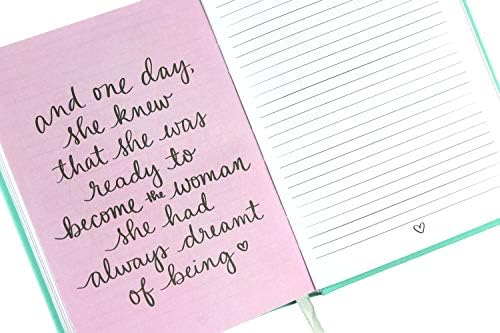 and one day,
she knew
that she was
ready to
become the woman
she had
always dreamt
of being♡